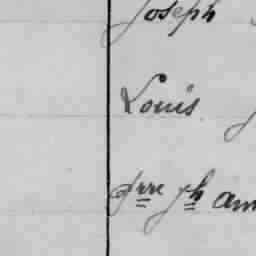 Joseph
Louis
prre jh am